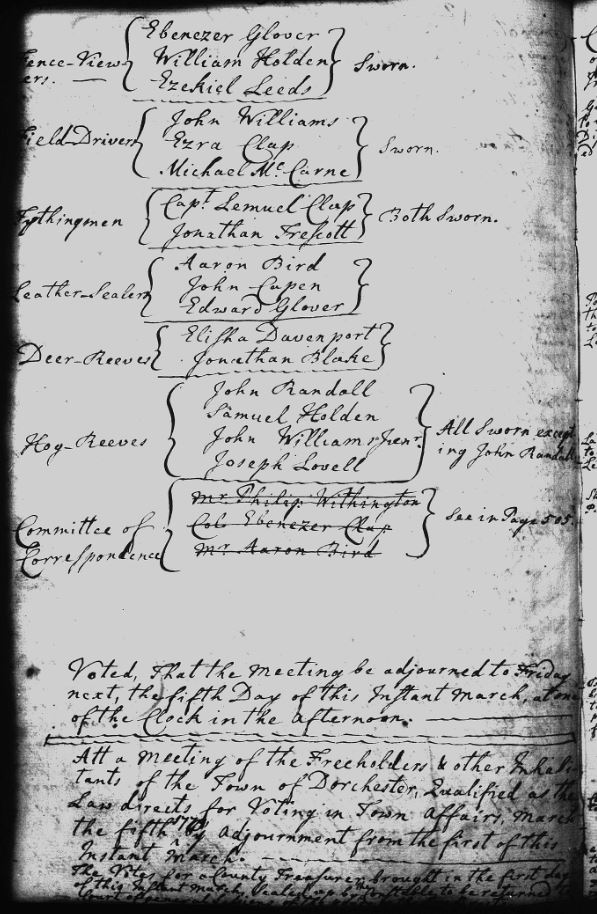 Fence-View-
ers. —
Ebenezer Glover
William Holden
Ezekiel Leeds
Sworn.
Field-Drivers
John Williams
Ezra Clap
Michael Mc. Carne
Sworn.
Tythingmen
Capt. Lemuel Clap
Jonathan Trescott
Both Sworn.
Leather-Sealers
Aaron Bird
John Capen
Edward Glover
Deer-Reeves
Elisha Davenport
Jonathan Blake
Hog-Reeves
John Randall
Samuel Holden
John Williams Junr.
Joseph Lovell
All Sworn except
ing John Randall
Committee of
Correspondence
Mr. Philip Withington
Col. Ebenezer Clap
Mr. Aaron Bird
See in Page 505.
Voted, That the Meeting be adjourned to Friday
next, the fifth Day of this Instant March, at one
of the Clock in the Afternoon.
Att a Meeting of the Freeholders & other Inhabi
tants of the Town of Dorchester, Qualified as the
Law directs for Voting in Town Affairs, March
the fifth by Adjournment from the first of this
Instant March.
The Votes for a County Treasurer brought in the first day
of this Instant March, Sealed up by Constable to be returned to